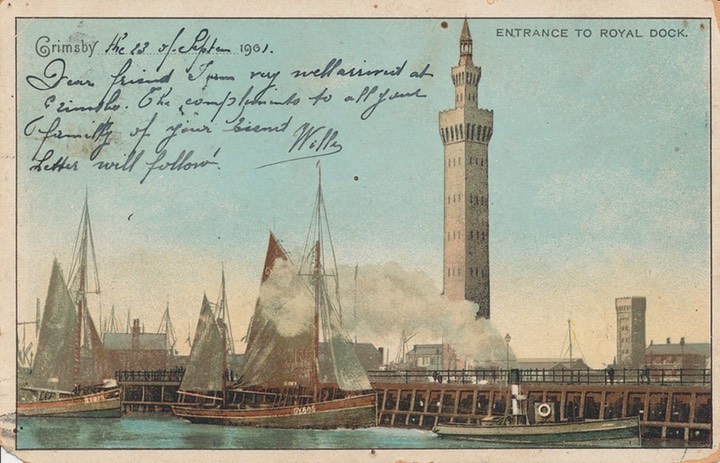 ENTRANCE TO ROYAL DOCK.
Grimsby the 23 of Septem 1901.
Dear friend I am very well arrived at
Grimsbo. The compliments to all your
familly of your friend
Willy
Letter will follow.